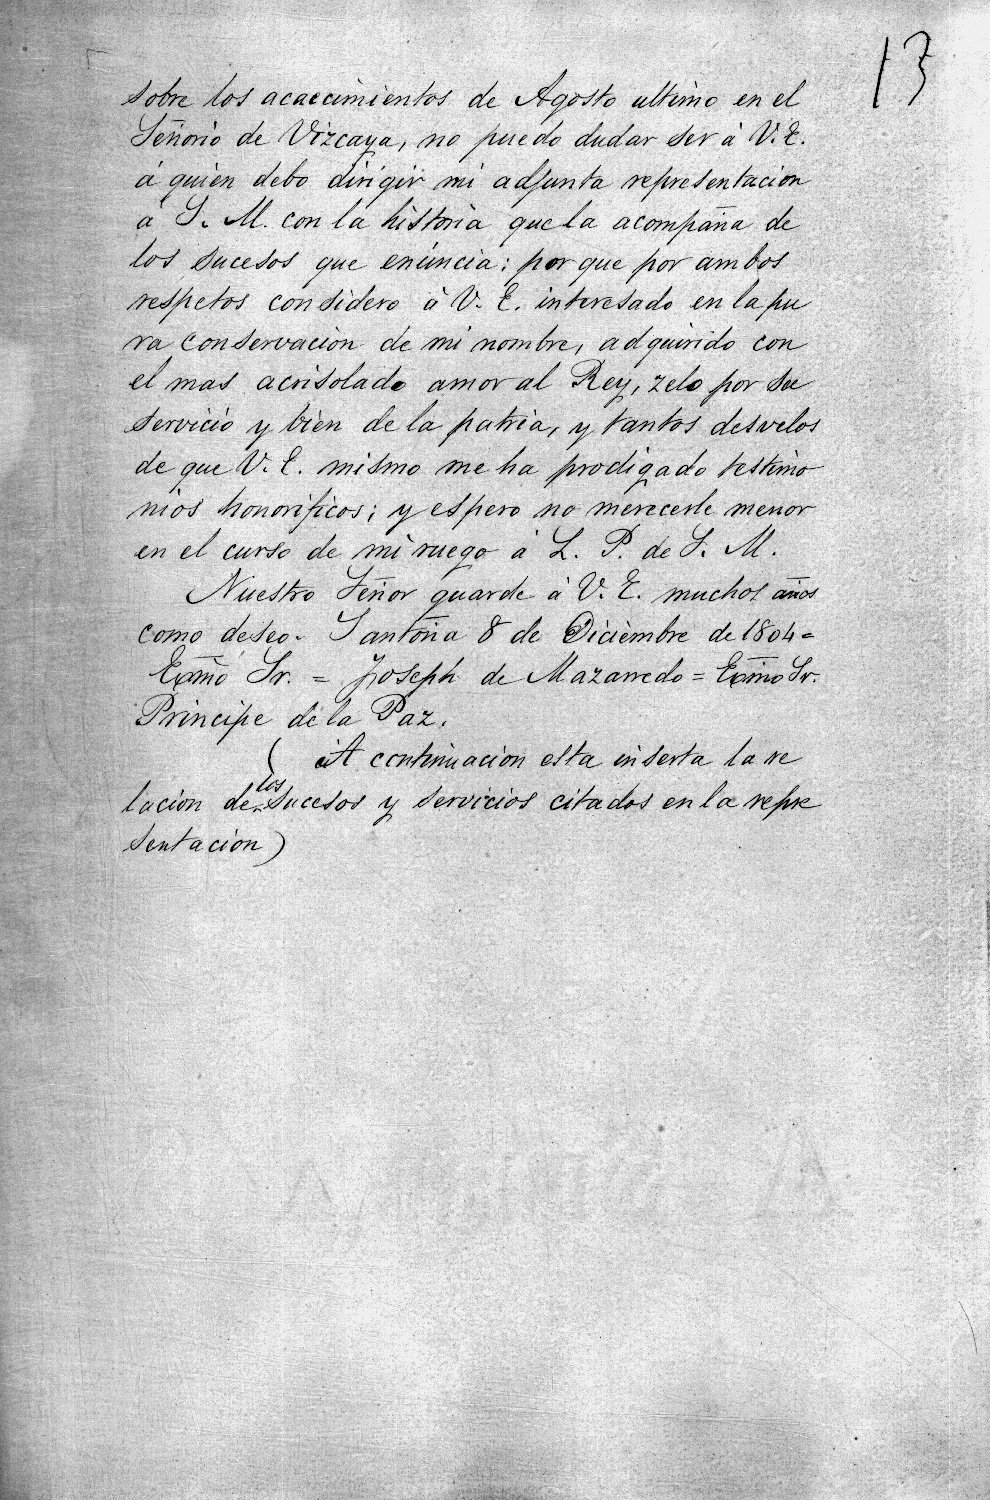 13
sobre los acaecimientos de Agosto ultimo en el
Señorio de Vizcaya, no puedo dudar ser à V. E.
á quien debo dirigir mi adjunta representacion
a S. M. con la historia que la acompaña de
los sucesos que enuncia: por que por ambos
respetos considero à V. E. interesado en la pu
ra conservacion de mi nombre, adquirido con
el mas acrisolado amor al Rey, zelo por su
servicio y bien de la patria, y tantos desvelos
de que V. E. mismo me ha prodigado testimo
nios honorificos; y espero no merecerle menor
en el curso de mi ruego á L. P. de S. M.
Nuestro Señor guarde à V. E. muchos años
como deseo. Santoña 8 de Diciembre de 1804=
Exmo Sr. = Joseph de Mazarredo = Exmo Sr.
Principe de la Paz.
( A continuacion esta inserta la re
lacion de los sucesos y servicios citados en la repre
sentacion)